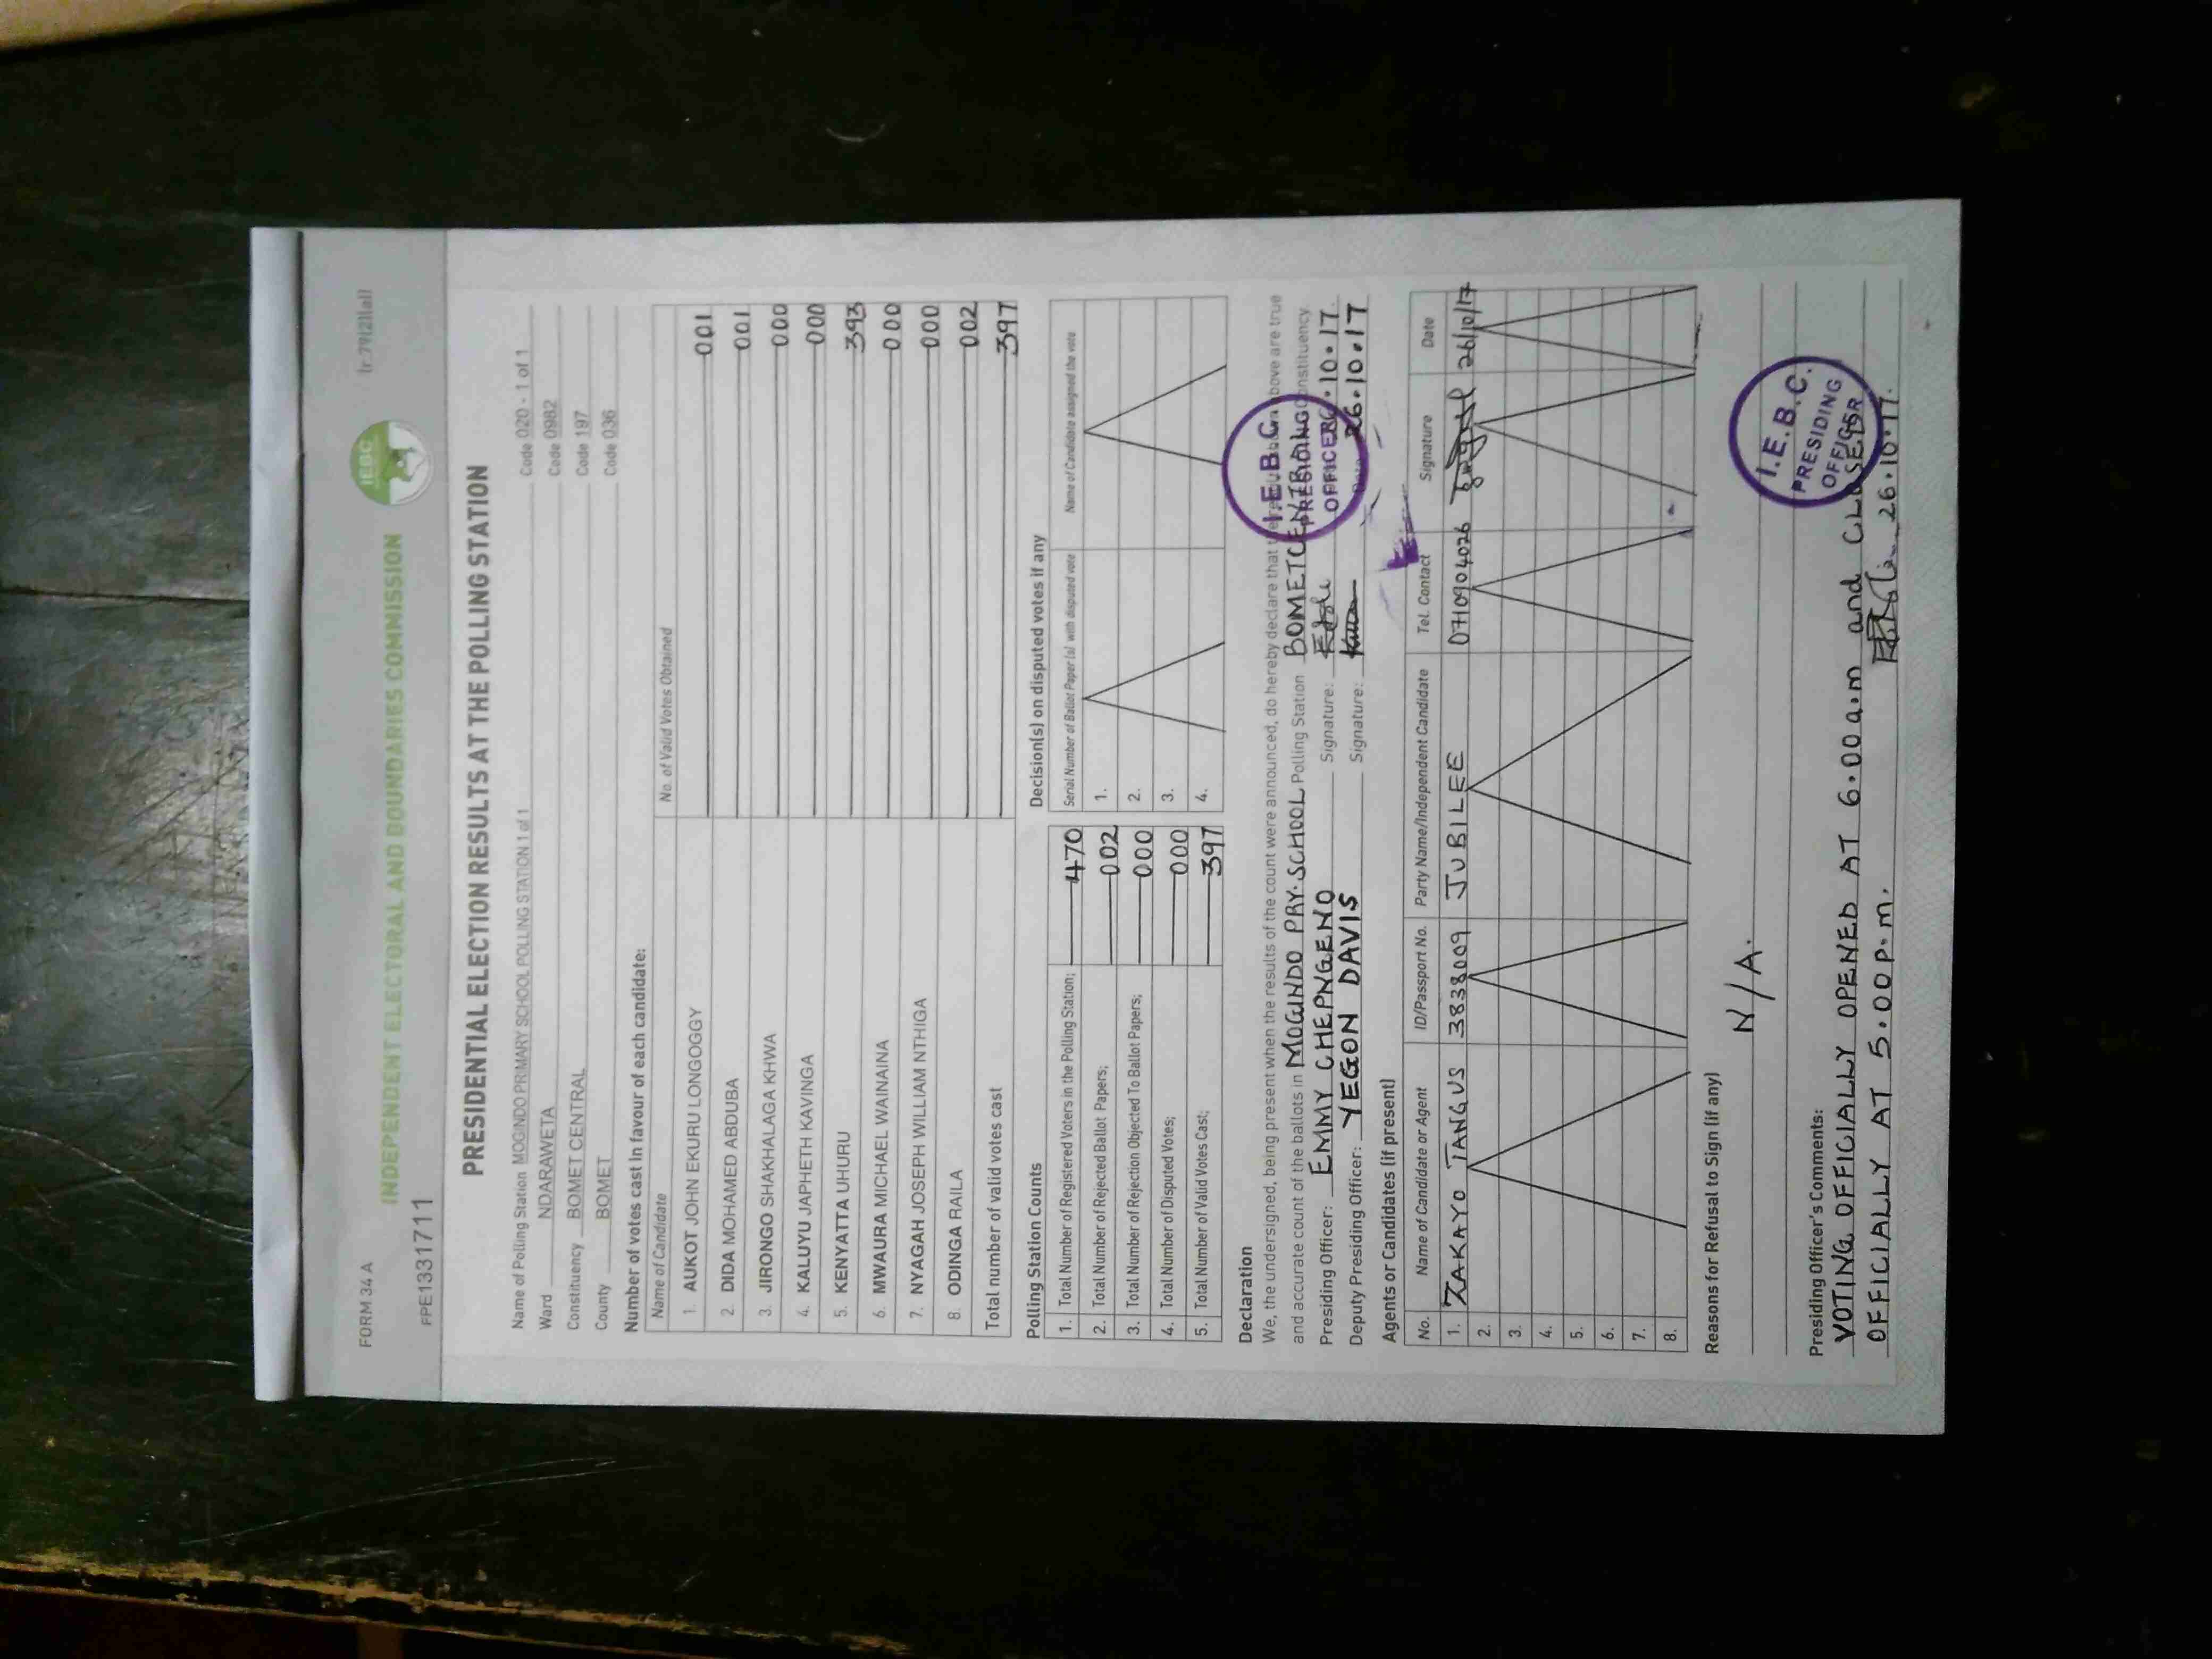 FORM 34 A
INDEPENDENT ELECTORAL AND BOUNDARIES COMMISSION
IEBC
FPE1331711
PRESIDENTIAL ELECTION RESULTS AT THE POLLING STATION
Name of Polling Station MOGINDO PRIMARY SCHOOL POLLING STATION 1 of 1 Code 020 - 1 of 1
Ward NDARAWETA Code 0982
Constituency BOMET CENTRAL Code 197
County BOMET Code 036
Number of votes cast in favour of each candidate:
Name of Candidate No. of Valid Votes Obtained
1. AUKOT JOHN EKURU LONGOGGY 001
2. DIDA MOHAMED ABDUBA 001
3. JIRONGO SHAKHALAGA KHWA 000
4. KALUYU JAPHETH KAVINGA 000
5. KENYATTA UHURU 393
6. MWAURA MICHAEL WAINAINA 000
7. NYAGAH JOSEPH WILLIAM NTHIGA 000
8. ODINGA RAILA 002
Total number of valid votes cast 397
Polling Station Counts
1. Total Number of Registered Voters in the Polling Station; 470
2. Total Number of Rejected Ballot Papers; 002
3. Total Number of Rejection Objected To Ballot Papers; 000
4. Total Number of Disputed Votes; 000
5. Total Number of Valid Votes Cast; 397
Decision(s) on disputed votes if any
Serial Number of Ballot Paper (s) with disputed vote Name of Candidate assigned the vote
1.
2.
3.
4.
Declaration
We, the undersigned, being present when the results of the count were announced, do hereby declare that the above are true
and accurate count of the ballots in MOGINDO PRY. SCHOOL Polling Station BOMET CENTRAL Constituency
Presiding Officer: EMMY CHEPNGENO Signature: 26.10.17
Deputy Presiding Officer: YEGON DAVIS Signature: 26.10.17
I.E.B.C.
PRESIDING
OFFICER
Agents or Candidates (if present)
No. Name of Candidate or Agent ID/Passport No. Party Name/Independent Candidate Tel. Contact Signature Date
1. ZAKAYO TANGUS 3838009 JUBILEE 0710904026 26/10/17
2.
3.
4.
5.
6.
7.
8.
Reasons for Refusal to Sign (if any)
N/A.
Presiding Officer's Comments:
VOTING OFFICIALLY OPENED AT 6.00 a.m and CLOSED
OFFICIALLY AT 5.00 p.m. 26.10.17.
I.E.B.C.
PRESIDING
OFFICER